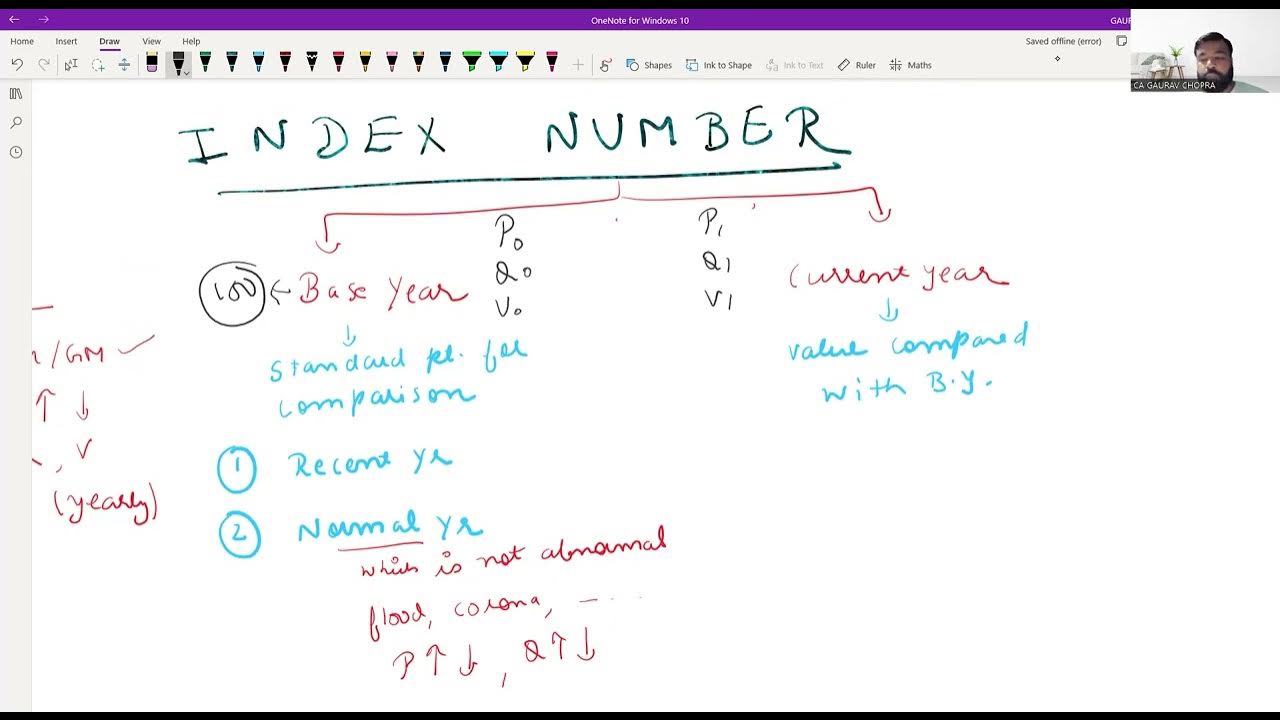 OneNote for Windows 10
Home Insert Draw View Help
Saved offline (error)
Shapes Ink to Shape Ink to Text Ruler Maths
CA GAURAV CHOPRA
INDEX NUMBER
P0 P1
Q0 Q1
V0 V1
100 ← Base Year
Current year
Standard pt. for
comparison
value compared
with B.Y.
/GM ✓
↑ ↓
, V
(yearly)
1 Recent yr
2 Normal yr
which is not abnormal
flood, corona, - ...
P↑↓, Q↑↓